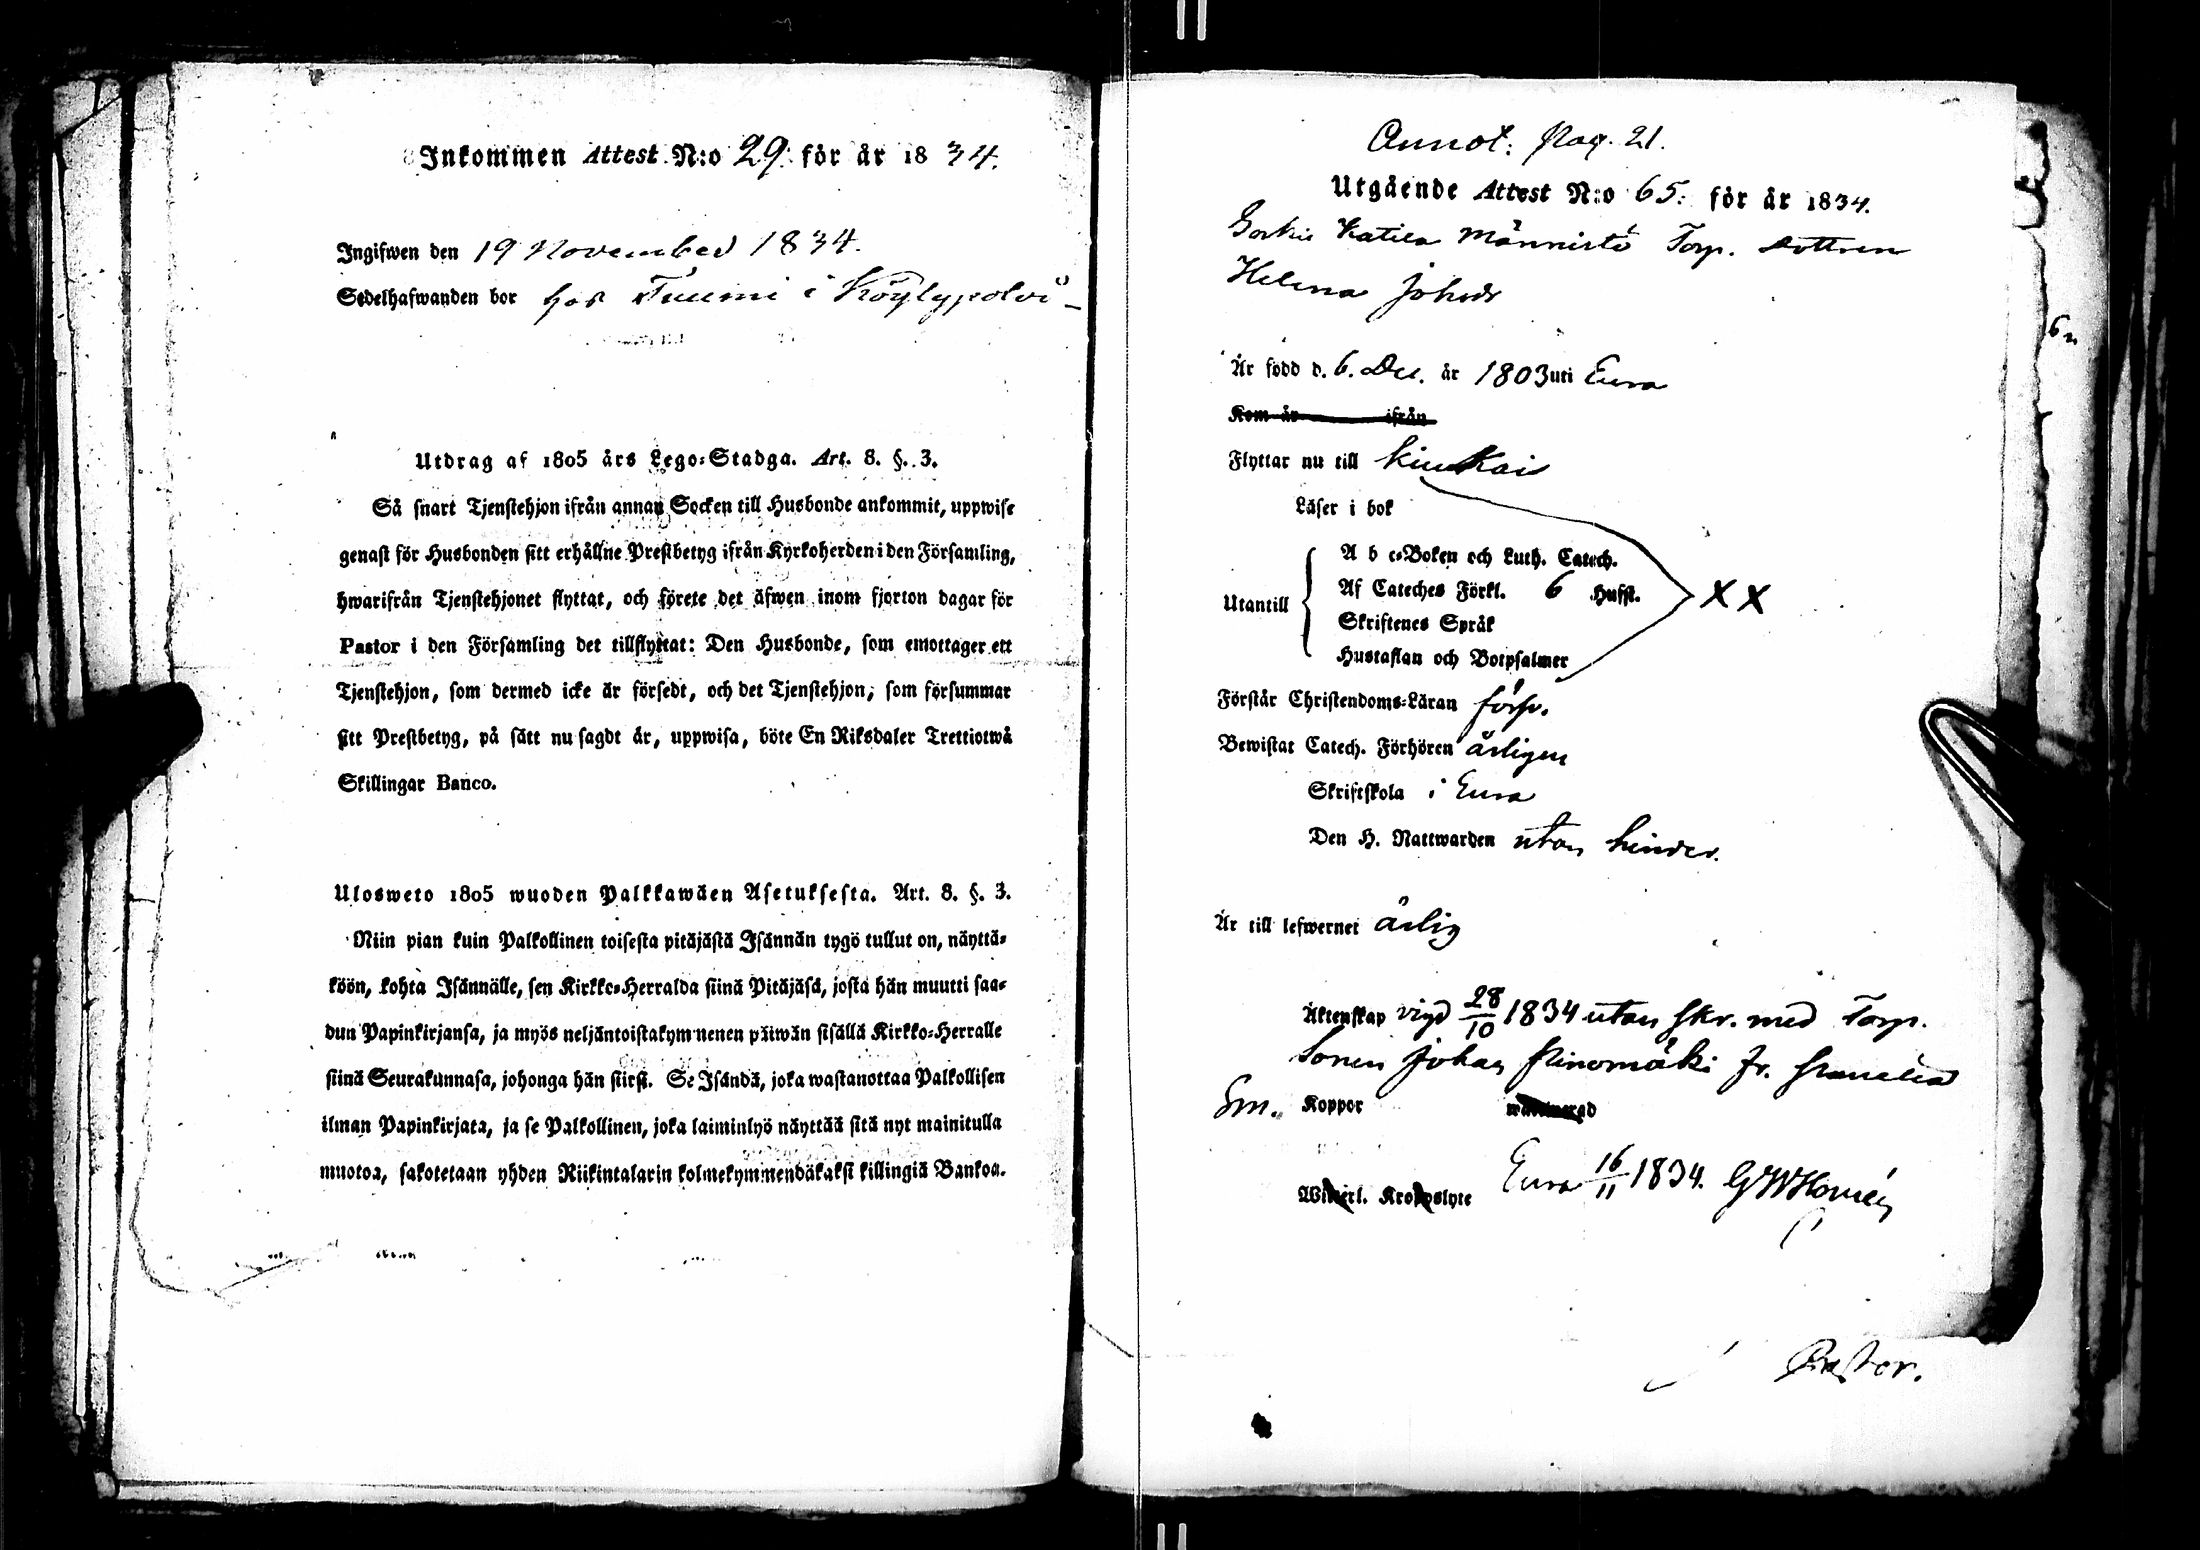 Inkommen Attest N:o 29. för år 1834.
Ingifwen den 19 November 1834.
Sedelhafwanden bor hos Tuumi i Köylypolvi
Utdrag af 1805 års Lego-Stadga. Art. 8. §. 3.
Så snart Tjenstehjon ifrån annan Socken till Husbonde ankommit, uppwise
genast för Husbonden sitt erhållne Prestbetyg ifrån Kyrkoherden i den Församling,
hwarifrån Tjenstehjonet flyttat, och förete det äfwen inom fjorton dagar för
Pastor i den Församling det tillflyttat: Den Husbonde, som emottager ett
Tjenstehjon, som dermed icke är försedt, och det Tjenstehjon, som försummar
sitt Prestbetyg, på sätt nu sagdt är, uppwisa, böte En Riksdaler Trettiotwå
Skillingar Banco.
Ulosweto 1805 wuoden Palkkawäen Asetuksesta. Art. 8. §. 3.
Niin pian kuin Palkollinen toisesta pitäjästä Isännän tygö tullut on, näyttä-
köön, kohta Isännälle, sen Kirkko-Herralda siinä Pitäjäsä, josta hän muutti saa-
dun Papinkirjansa, ja myös neljäntoistakymmenen päiwän sisällä Kirkko-Herralle
siinä Seurakunnasa, johonga hän siirsi. Se Isändä, joka wastanottaa Palkollisen
ilman Papinkirjata, ja se Palkollinen, joka laiminlyö näyttää sitä nyt mainitulla
muotoa, sakotetaan yhden Riikintalarin kolmekymmendäkaksi killingiä Bankoa.
Annot: Pag. 21.
Utgående Attest N:o 65: för år 1834.
Katila Männistö Torp. dottren
Helena Johsdr
Är född d. 6. Dec. år 1803 uti Eura
Kom år ifrån
Flyttar nu till Kiukais
Läser i bok
A b c-Boken och Luth. Catech.
Utantill Af Cateches Förkl. 6 Hufst. X X
Skriftenes Språk
Hustaflan och Botpsalmer
Förstår Christendoms-Läran försv.
Bewistat Catech. Förhören årligen
Skriftskola i Eura
Den H. Nattwarden utan hinder.
Är till lefwernet ärlig
Äktenskap vigd 28/10 1834 utan skr. med Torp.
Sonen Johan
Koppor
Eura 16/11 1834.
Pastor.